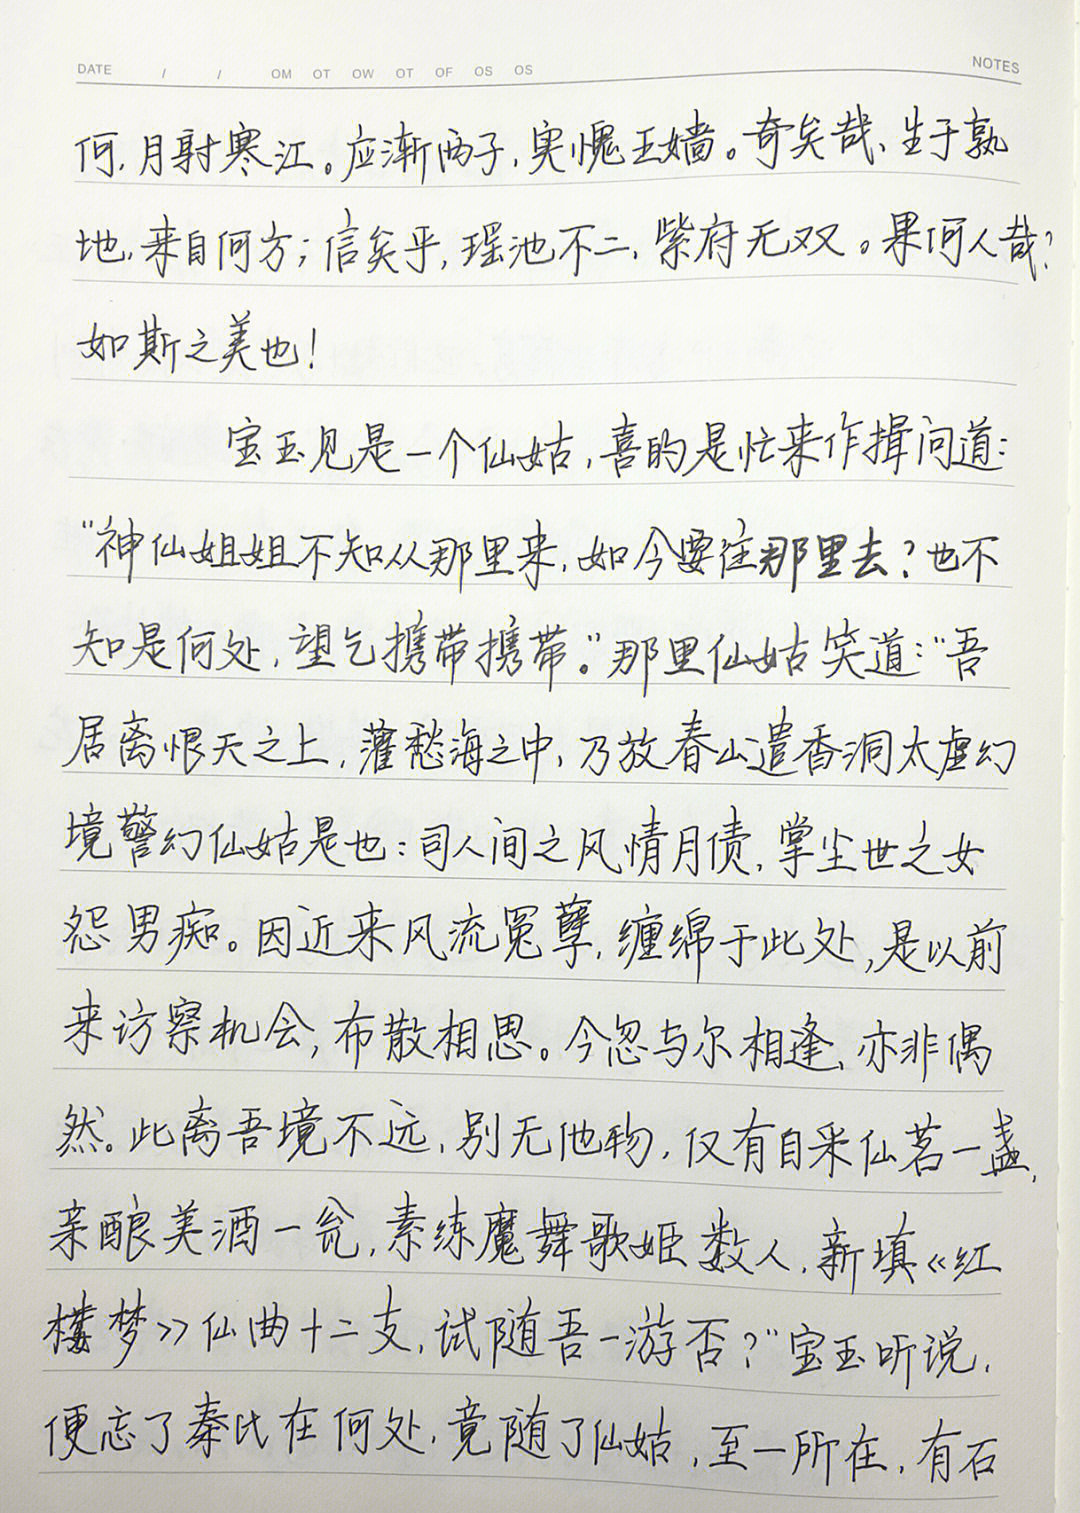 DATE / / OM OT OW OT OF OS OS NOTES
何,月射寒江。应渐两子,实愧王嫱。奇矣哉、生于孰
地,来自何方;信矣乎,瑶池不二,紫府无双。果何人哉?
如斯之美也!
宝玉见是一个仙姑,喜的是忙来作揖问道:
“神仙姐姐不知从那里来,如今要往那里去?也不
知是何处,望乞携带携带。”那里仙姑笑道:“吾
居离恨天之上,灌愁海之中,乃放春山遣香洞太虚幻
境警幻仙姑是也:司人间之风情月债,掌尘世之女
怨男痴。因近来风流冤孽,缠绵于此处,是以前
来访察机会,布散相思。今忽与尔相逢、亦非偶
然。此离吾境不远,别无他物,仅有自采仙茗一盏,
亲酿美酒一瓮,素练魔舞歌姬数人,新填《红
楼梦》仙曲十二支,试随吾一游否?”宝玉听说,
便忘了秦氏在何处,竟随了仙姑,至一所在,有石